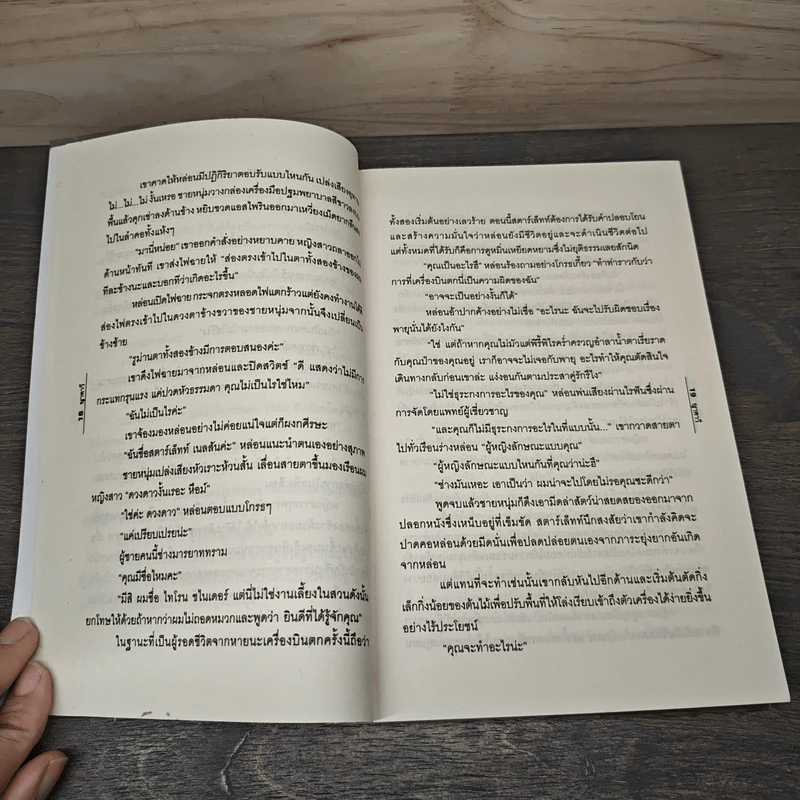 เขาคาดให้หล่อนมีปฏิกิริยาตอบรับแบบไหนกัน เปล่งเสียง
ไม่...ไม่...ไม่ งั้นเหรอ ชายหนุ่มวางกล่องเครื่องมือปฐมพยาบาลสีขาวลง
พื้นแล้วคุกเข่าลงด้านข้าง หยิบขวดแอสไพรินออกมาเหวี่ยงเม็ดยา
ไปในลำคอทั้งแห้งๆ
“มานี่หน่อย” เขาออกคำสั่งอย่างหยาบคาย หญิงสาวถลา
ด้านหน้าทันที เขาส่งไฟฉายให้ “ส่องตรงเข้าไปในตาทั้งสองข้างของ
ทีละข้างนะและบอกทีว่าเกิดอะไรขึ้น”
หล่อนเปิดไฟฉาย กระจกตรงหลอดไฟแตกร้าวแต่ยังคงทำงานได้ดี
ส่องไฟตรงเข้าไปในดวงตาข้างขวาของชายหนุ่มจากนั้นจึงเปลี่ยนเป็น
ข้างซ้าย
“รูม่านตาทั้งสองข้างมีการตอบสนองค่ะ”
เขาดึงไฟฉายมาจากหล่อนและปิดสวิตช์ “ดี แสดงว่าไม่มีการ
กระแทกรุนแรง แค่ปวดหัวธรรมดา คุณไม่เป็นไรใช่ไหม”
“ฉันไม่เป็นไรค่ะ”
เขาจ้องมองหล่อนอย่างไม่ค่อยแน่ใจแต่ก็ผงกศีรษะ
“ฉันชื่อสตาร์เล็ทท์ เนลสันค่ะ” หล่อนแนะนำตนเองอย่างสุภาพ
ชายหนุ่มเปล่งเสียงหัวเราะห้วนสั้น เลื่อนสายตาขึ้นมองเรือนผม
หญิงสาว “ดวงดาวงั้นเรอะ หืออม์”
“ใช่ค่ะ ดวงดาว” หล่อนตอบแบบโกรธๆ
“แค่เปรียบเปรยน่ะ”
ผู้ชายคนนี้ช่างมารยาททราม
“คุณมีชื่อไหมคะ”
“มีสิ ผมชื่อ ไทโรน ชไนเดอร์ แต่นี่ไม่ใช่งานเลี้ยงในสวนดังนั้น
ยกโทษให้ด้วยถ้าหากว่าผมไม่ถอดหมวกและพูดว่า ยินดีที่ได้รู้จักคุณ”
ในฐานะที่เป็นผู้รอดชีวิตจากหายนะเครื่องบินตกครั้งนี้ถือว่า
18
ทั้งสองเริ่มต้นอย่างเลวร้าย ตอนนี้สตาร์เล็ทท์ต้องการได้รับคำปลอบโยน
และสร้างความมั่นใจว่าหล่อนยังมีชีวิตอยู่และจะดำเนินชีวิตต่อไป
แต่ทั้งหมดที่ได้รับก็คือการดูหมิ่นเหยียดหยามซึ่งไม่ยุติธรรมเลยสักนิด
“คุณเป็นอะไรฮึ” หล่อนร้องถามอย่างโกรธเกรี้ยว “ทำท่าราวกับว่า
การที่เครื่องบินตกนี่เป็นความผิดของฉัน”
“อาจจะเป็นอย่างงั้นก็ได้”
หล่อนอ้าปากค้างอย่างไม่เชื่อ “อะไรนะ ฉันจะไปรับผิดชอบเรื่อง
พายุนั่นได้ยังไงกัน”
“ใช่ แต่ถ้าหากคุณไม่มัวแต่พิรี้พิไรคร่ำครวญอำลาน้ำตาเรี่ยราด
กับคุณป๋าของคุณอยู่ เราก็อาจจะไม่เจอกับพายุ อะไรทำให้คุณตัดสินใจ
เดินทางกลับก่อนเขาล่ะ แง่งอนกันตามประสาคู่รักรึไง”
“ไม่ใช่ธุระกงการอะไรของคุณ” หล่อนพ่นเสียงผ่านไรฟันซึ่งผ่าน
การจัดโดยแพทย์ผู้เชี่ยวชาญ
“และคุณก็ไม่มีธุระกงการอะไรในที่แบบนั้น...” เขากวาดสายตา
ไปทั่วเรือนร่างหล่อน “ผู้หญิงลักษณะแบบคุณ”
“ผู้หญิงลักษณะแบบไหนกันที่คุณว่าน่ะฮึ”
“ช่างมันเหอะ เอาเป็นว่า ผมน่าจะไปโดยไม่รอคุณซะดีกว่า”
พูดจบแล้วชายหนุ่มก็ดึงเอามีดล่าสัตว์น่าสยดสยองออกมาจาก
ปลอกหนังซึ่งเหน็บอยู่ที่เข็มขัด สตาร์เล็ทท์นึกสงสัยว่าเขากำลังคิดจะ
ปาดคอหล่อนด้วยมีดนั่นเพื่อปลดปล่อยตนเองจากภาระยุ่งยากอันเกิด
จากหล่อน
แต่แทนที่จะทำเช่นนั้นเขากลับหันไปอีกด้านและเริ่มต้นตัดกิ่ง
เล็กกิ่งน้อยของต้นไม้เพื่อปรับพื้นที่ให้โล่งเรียบเข้าถึงตัวเครื่องได้ง่ายยิ่งขึ้น
อย่างไร้ประโยชน์
“คุณจะทำอะไรน่ะ”
19